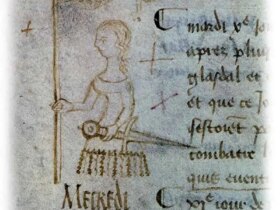 mardi xe jo
apres plu
glasdal et
et que ce Jo
sestoient p
combatre
Mecredi xie jour de